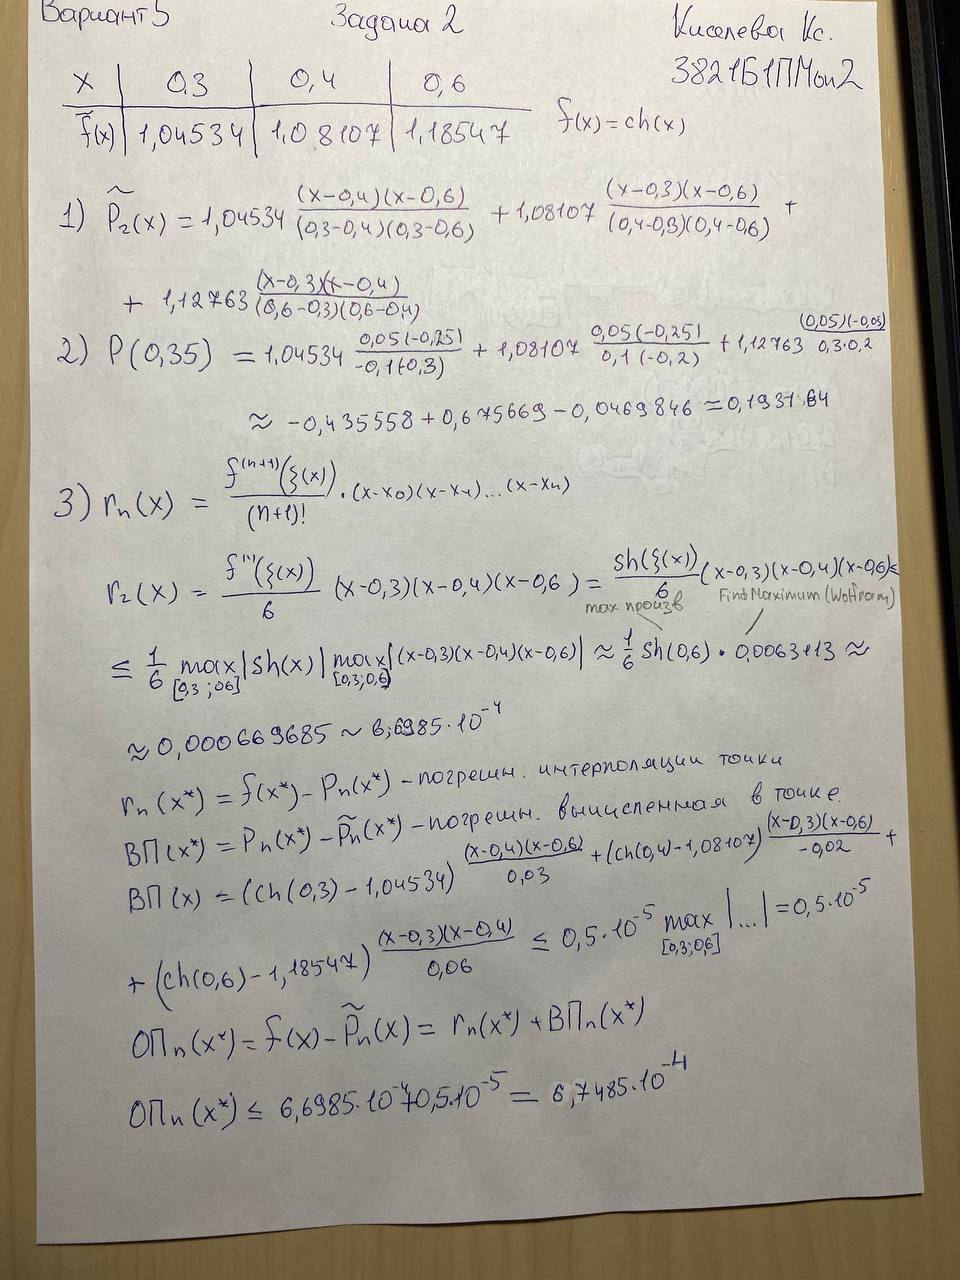 Вариант 5 Задача 2 Киселева Кс.
3821Б1ПМоп2
x | 0.3 | 0,4 | 0,6
f̃(x) | 1,04534 | 1.08107 | 1,18547 f(x) = ch(x)
1) P̃₂(x) = 1,04534 (x-0,4)(x-0,6)/(0,3-0,4)(0,3-0,6) + 1,08107 (x-0,3)(x-0,6)/(0,4-0,3)(0,4-0,6) +
+ 1,12763 (x-0,3)(x-0,4)/(0,6-0,3)(0,6-0,4)
2) P(0,35) = 1,04534 0,05(-0,25)/-0,1(-0,3) + 1,08107 0,05(-0,25)/0,1(-0,2) + 1,12763 (0,05)(-0,05)/0,3·0,2
≈ -0,435558 + 0,675669 - 0,0469846 ≈ 0,193164
3) rₙ(x) = f⁽ⁿ⁺¹⁾(ξ(x))/(n+1)! · (x-x₀)(x-x₁)...(x-xₙ)
r₂(x) = f'''(ξ(x))/6 (x-0,3)(x-0,4)(x-0,6) = sh(ξ(x))/6 (x-0,3)(x-0,4)(x-0,6) ≤
max произв FindMaximum (Wolfram)
≤ 1/6 max[0,3;0,6] |sh(x)| max[0,3;0,6] |(x-0,3)(x-0,4)(x-0,6)| ≈ 1/6 sh(0,6) · 0,0063113 ≈
≈ 0,000669685 ~ 6,6985·10⁻⁴
rₙ(x*) = f(x*) - Pₙ(x*) - погрешн. интерполяции точки
ВП(x*) = Pₙ(x*) - P̃ₙ(x*) - погрешн. вычисленная в точке.
ВП(x) = (ch(0,3) - 1,04534) (x-0,4)(x-0,6)/0,03 + (ch(0,4) - 1,08107) (x-0,3)(x-0,6)/-0,02 +
+ (ch(0,6) - 1,18547) (x-0,3)(x-0,4)/0,06 ≤ 0,5·10⁻⁵ max[0,3;0,6] |...| = 0,5·10⁻⁵
ОПₙ(x*) = f(x) - P̃ₙ(x) = rₙ(x*) + ВПₙ(x*)
ОПₙ(x*) ≤ 6,6985·10⁻⁴+0,5·10⁻⁵ = 6,7485·10⁻⁴